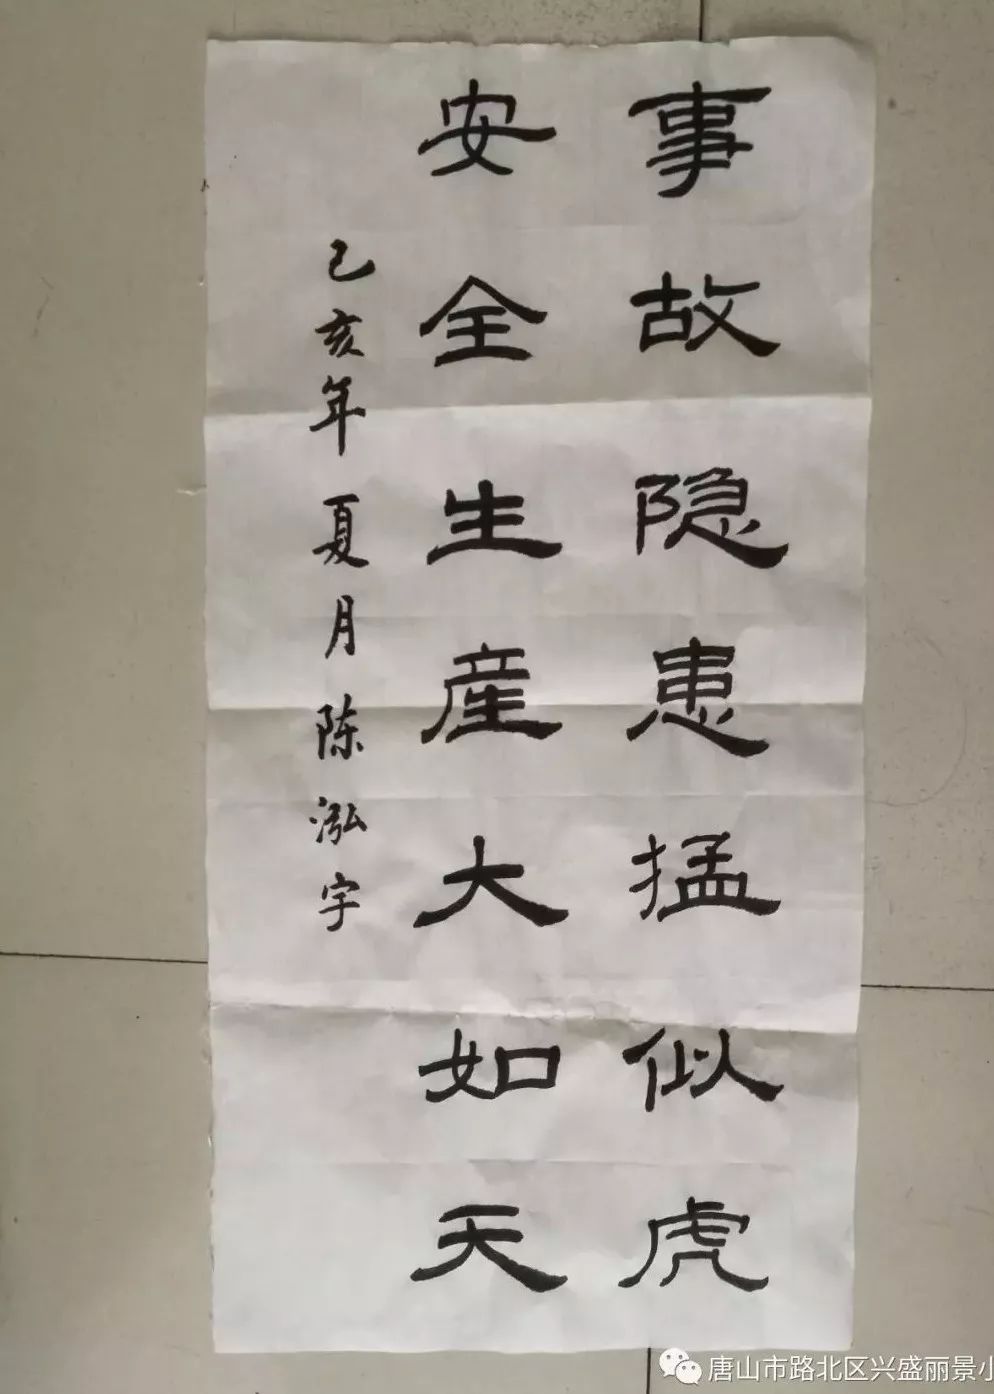 事故隐患猛似虎
安全生産大如天
己亥年夏月陈泓宇
唐山市路北区兴盛丽景小